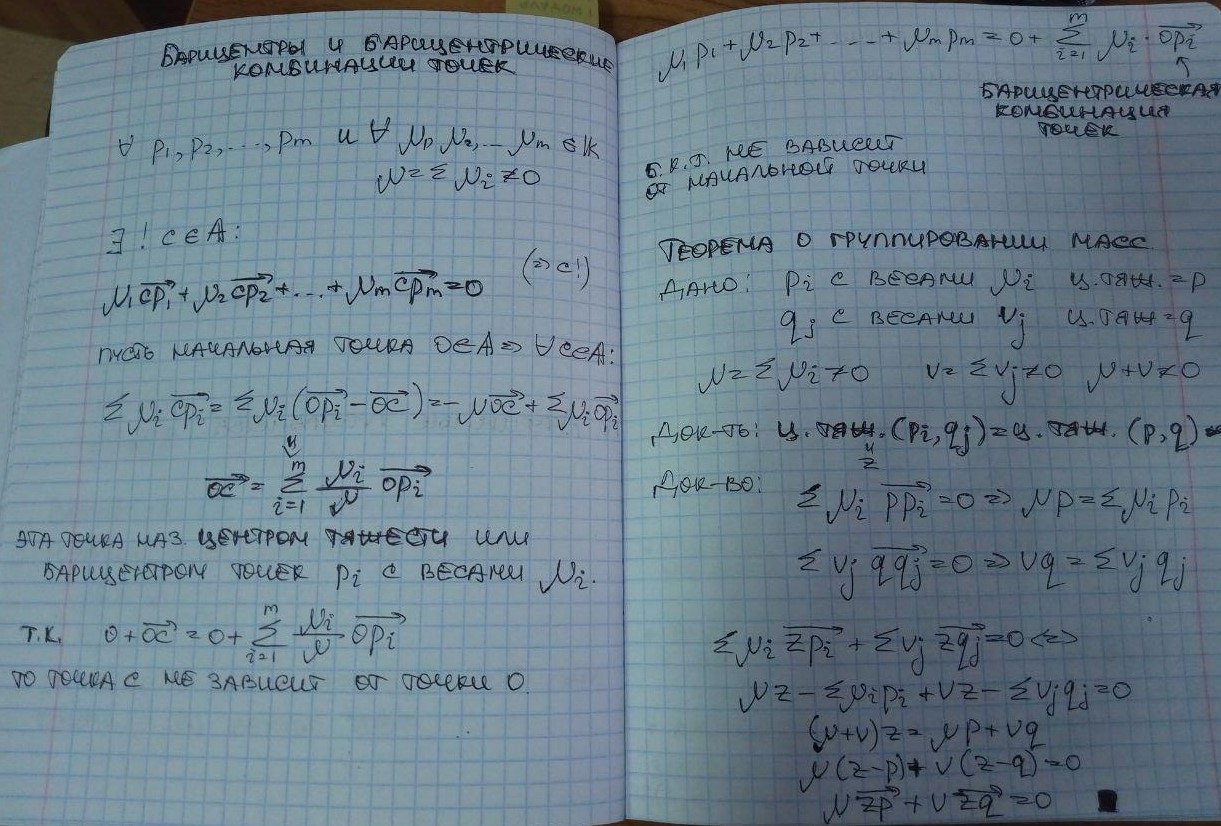 БАРИЦЕНТРЫ И БАРИЦЕНТРИЧЕСКИЕ
КОМБИНАЦИИ ТОЧЕК
∀ p₁, p₂, ..., pm и ∀ μ₁, μ₂, ... μm ∈ 𝕂
μ = Σ μi ≠ 0
∃! c ∈ A:
μ₁ \overrightarrow{cp₁} + μ₂ \overrightarrow{cp₂} + ... + μm \overrightarrow{cpm} = 0 (⇒ c!)
ПУСТЬ НАЧАЛЬНАЯ ТОЧКА O ∈ A ⇒ ∀ c ∈ A:
Σ μi \overrightarrow{cpi} = Σ μi (\overrightarrow{opi} − \overrightarrow{oc}) = −μ \overrightarrow{oc} + Σ μi \overrightarrow{opi}
⇓
\overrightarrow{oc} = \sum_{i=1}^{m} \frac{μi}{μ} \overrightarrow{opi}
ЭТА ТОЧКА НАЗ. ЦЕНТРОМ ТЯЖЕСТИ ИЛИ
БАРИЦЕНТРОМ ТОЧЕК pi С ВЕСАМИ μi.
Т.К. o + \overrightarrow{oc} = o + \sum_{i=1}^{m} \frac{μi}{μ} \overrightarrow{opi}
ТО ТОЧКА C НЕ ЗАВИСИТ ОТ ТОЧКИ O.
μ₁p₁ + μ₂p₂ + ... + μmpm = o + \sum_{i=1}^{m} μi · \overrightarrow{opi}
↑
БАРИЦЕНТРИЧЕСКАЯ
КОМБИНАЦИЯ
ТОЧЕК
Б.К.Т. НЕ ЗАВИСИТ
ОТ НАЧАЛЬНОЙ ТОЧКИ
ТЕОРЕМА О ГРУППИРОВАНИИ МАСС
ДАНО: pi С ВЕСАМИ μi Ц.ТЯЖ. = p
qj С ВЕСАМИ νj Ц.ТЯЖ = q
μ = Σ μi ≠ 0 ν = Σ νj ≠ 0 μ + ν ≠ 0
ДОК-ТЬ: Ц. ТЯЖ. (pi, qj) = Ц. ТЯЖ. (p, q)
z
ДОК-ВО:
Σ μi \overrightarrow{ppi} = 0 ⇒ μp = Σ μi pi
Σ νj \overrightarrow{qqj} = 0 ⇒ νq = Σ νj qj
Σ μi \overrightarrow{zpi} + Σ νj \overrightarrow{zqj} = 0 ⇔
μz − Σ μi pi + νz − Σ νj qj = 0
(μ + ν) z = μp + νq
μ (z − p) + ν (z − q) = 0
μ \overrightarrow{zp} + ν \overrightarrow{zq} = 0 ■